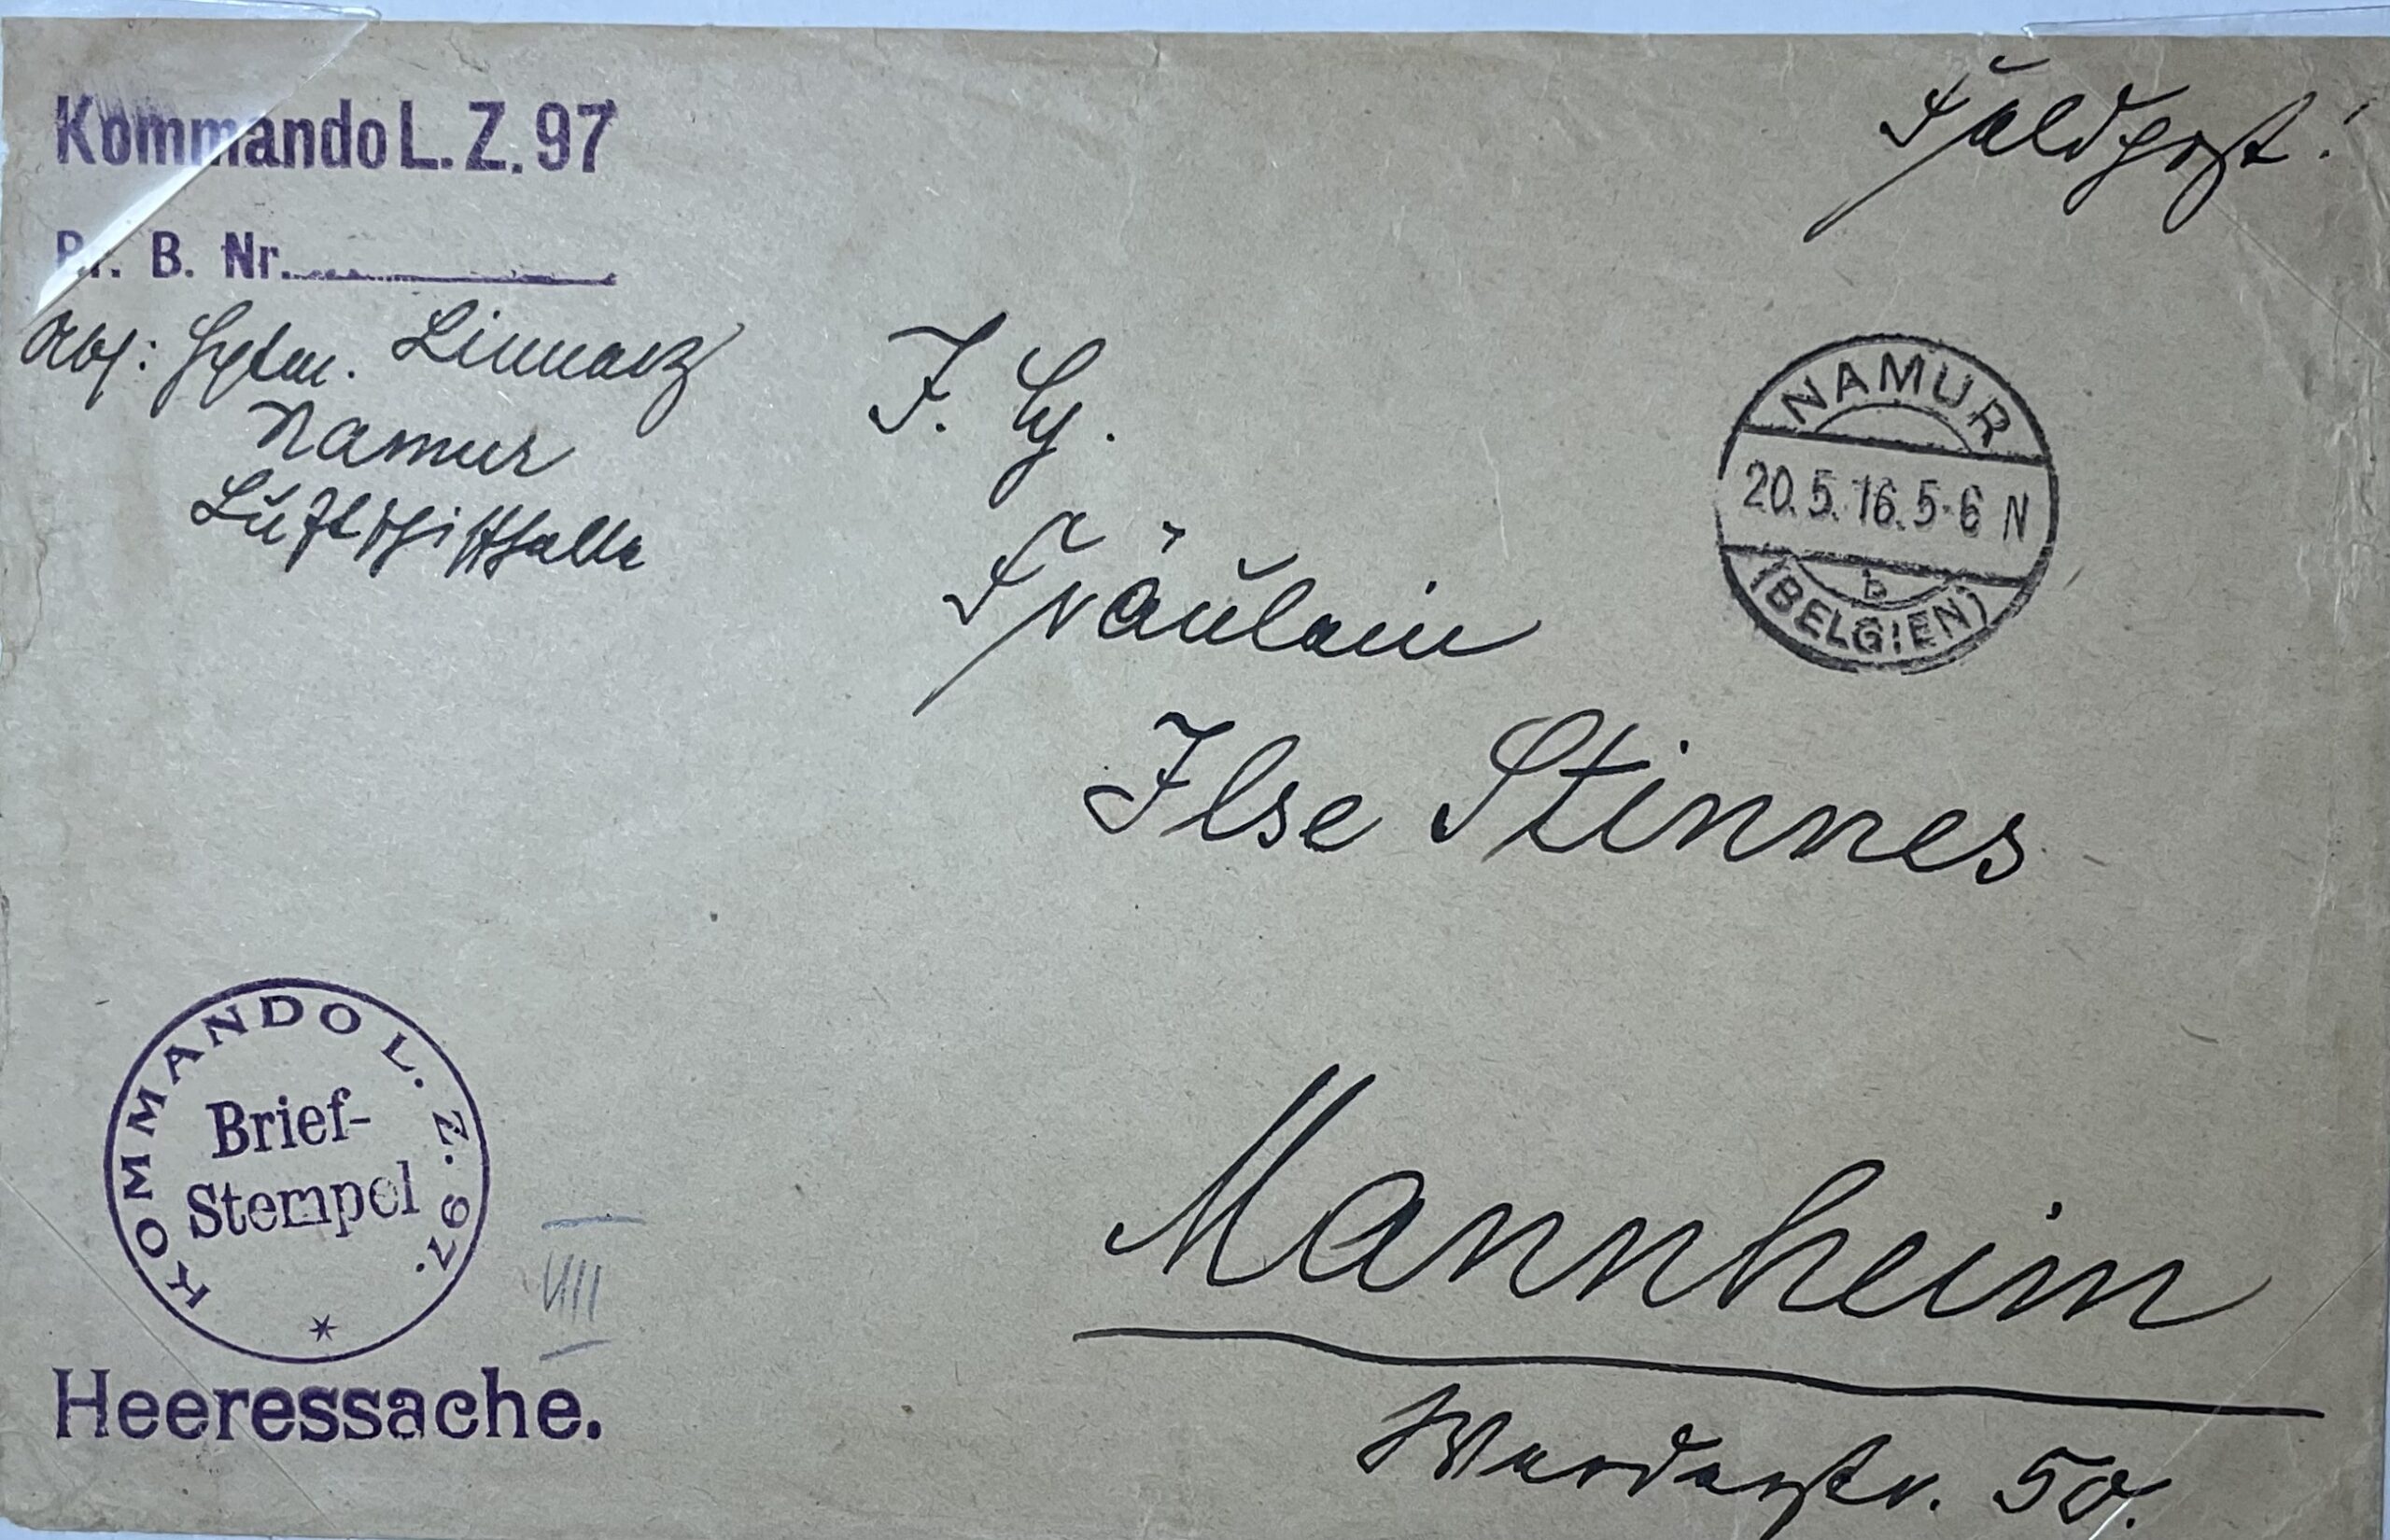 Kommando L. Z. 97
Br. B. Nr.
Feldpost!
Abs: Hptm. Linnarz
Namur
Luftschiffhalle
I. H.
Fräulein
Ilse Stinnes
NAMUR
20.5.16.5-6 N
b
(BELGIEN)
Mannheim
Werderstr. 50.
KOMMANDO L. Z. 97.
Brief-
Stempel
VIII
Heeressache.